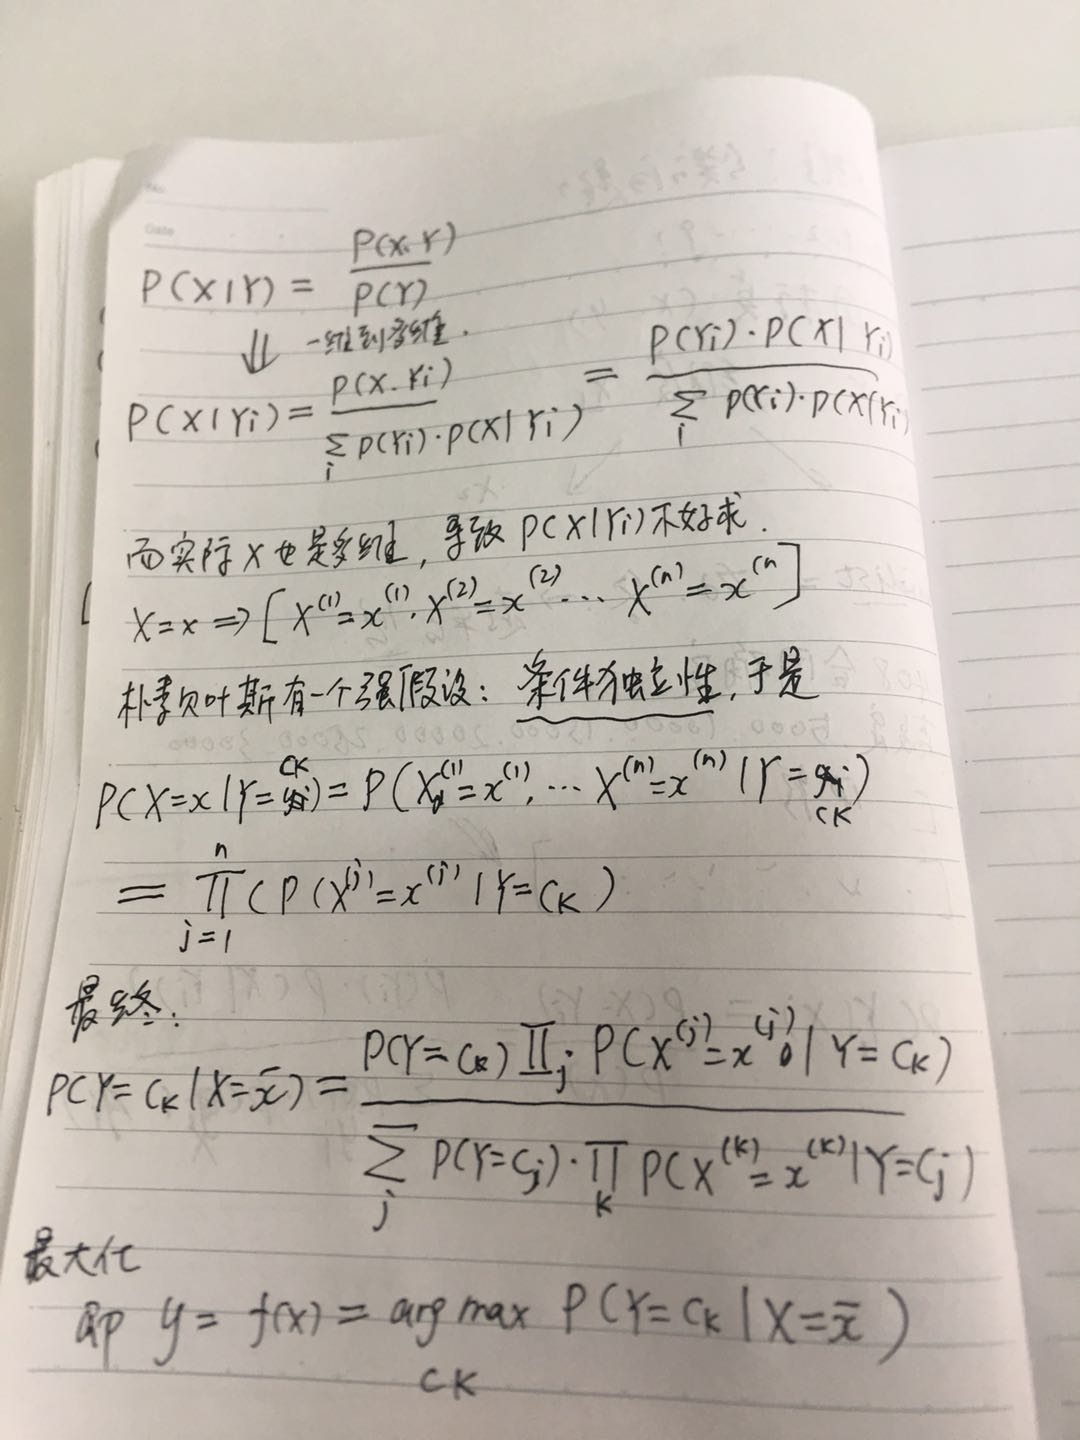 No.
Date
P(X|Y) = P(X.Y) / P(Y)
⇓ 一维到多维.
P(X|Yi) = P(X.Yi) / ∑i P(Yi)·P(X|Yi) = P(Yi)·P(X|Yi) / ∑i P(Yi)·P(X|Yi)
而实际X也是多维, 导致 P(X|Yi)不好求.
X=x ⇒ [X^(1)=x^(1), X^(2)=x^(2) ··· X^(n)=x^(n]
朴素贝叶斯有一个强假设: 条件独立性, 于是
P(X=x|Y=CK) = P(X^(1)=x^(1), ··· X^(n)=x^(n)|Y=CK)
= ∏_{j=1}^{n} (P(X^(j)=x^(j)|Y=CK)
最终:
P(Y=CK|X=x̄) = P(Y=CK) ∏j P(X^(j)=x^(j)|Y=CK) / ∑j P(Y=Cj)·∏K P(X^(K)=x^(K)|Y=Cj)
最大化
即 y = f(x) = arg max P(Y=CK|X=x̄)
CK